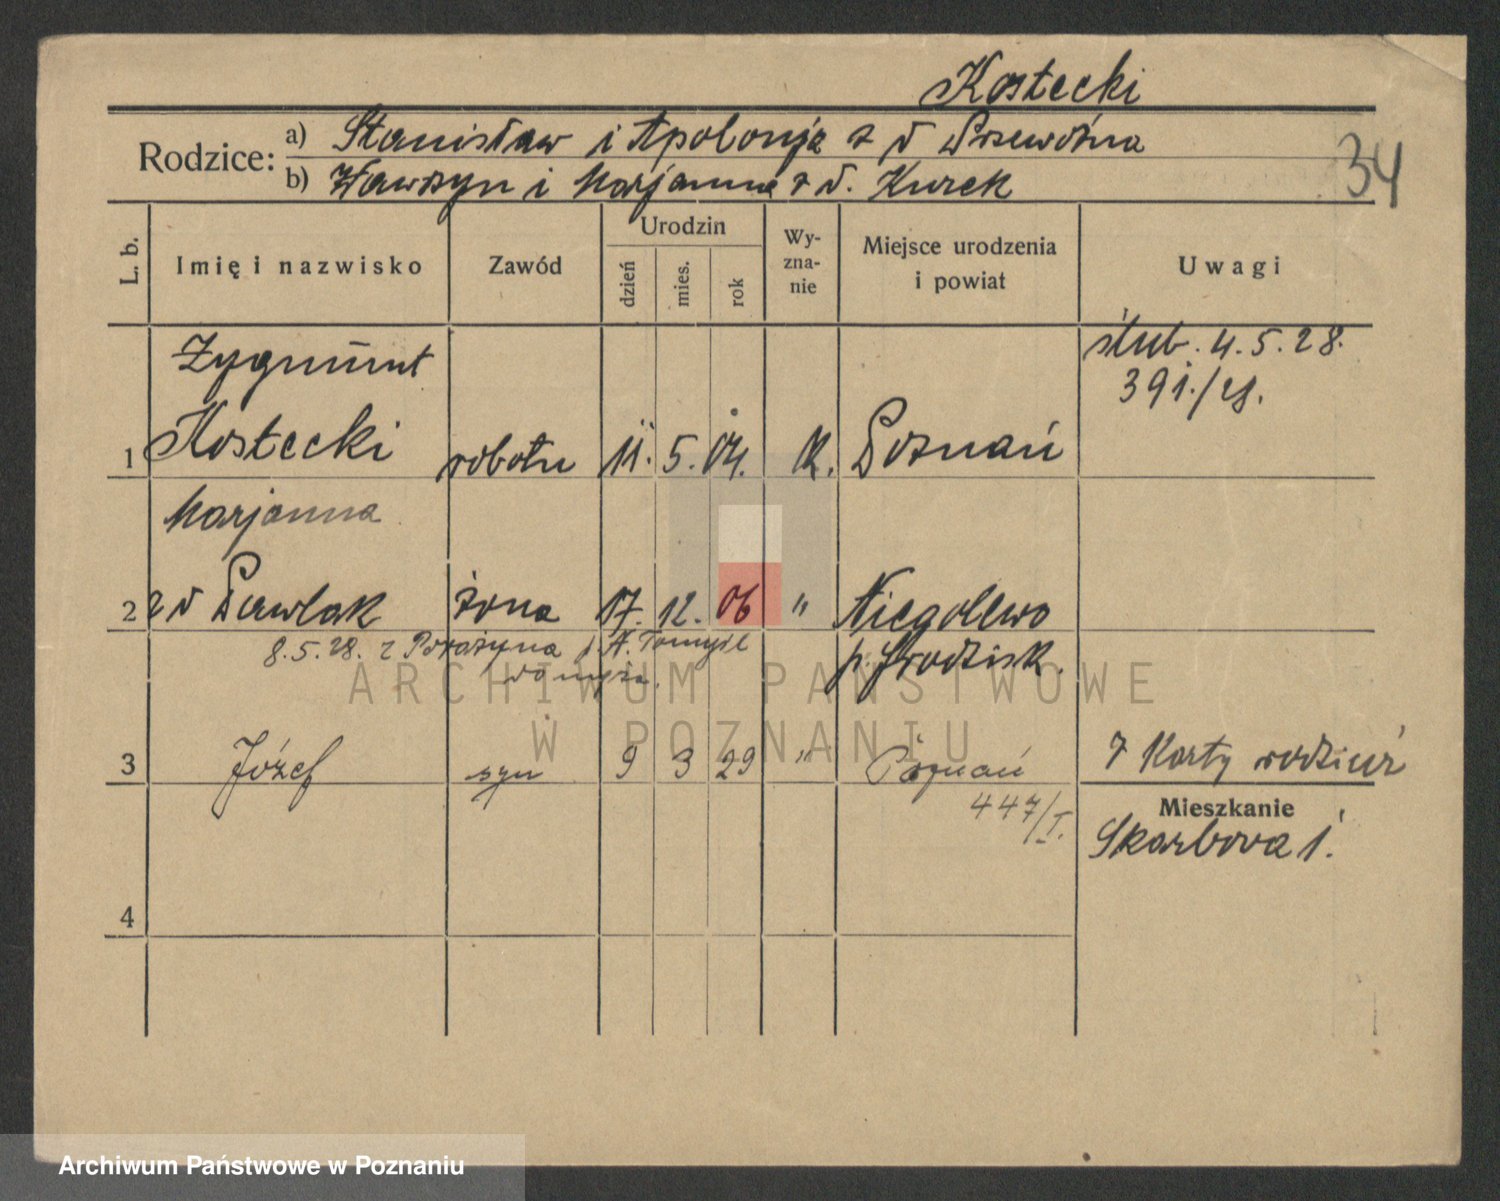 Kostecki
Rodzice: a) Stanisław i Apolonja z d Przewoźna
b) Wawrzyn i Marjanna z d. Kurek
34
L. b. Imię i nazwisko Zawód Urodzin dzień mies. rok Wy-zna-nie Miejsce urodzenia i powiat Uwagi
Zygmunt
ślub. 4.5.28.
391./28.
1 Kostecki robotn 11. 5. 04. k. Poznań
Marjanna
2 z d Pawlak żona 17. 12. 06 " Niegolewo
8.5.28. z Porażyna p. N. Tomyśl
p. Grodzisk.
do męża.
ARCHIWUM PAŃSTWOWE
W POZNANIU
3 Józef syn 9 3 29 " Poznań
z Karty rodziców
447/I.
Mieszkanie
Skarbowa 1.
4
Archiwum Państwowe w Poznaniu